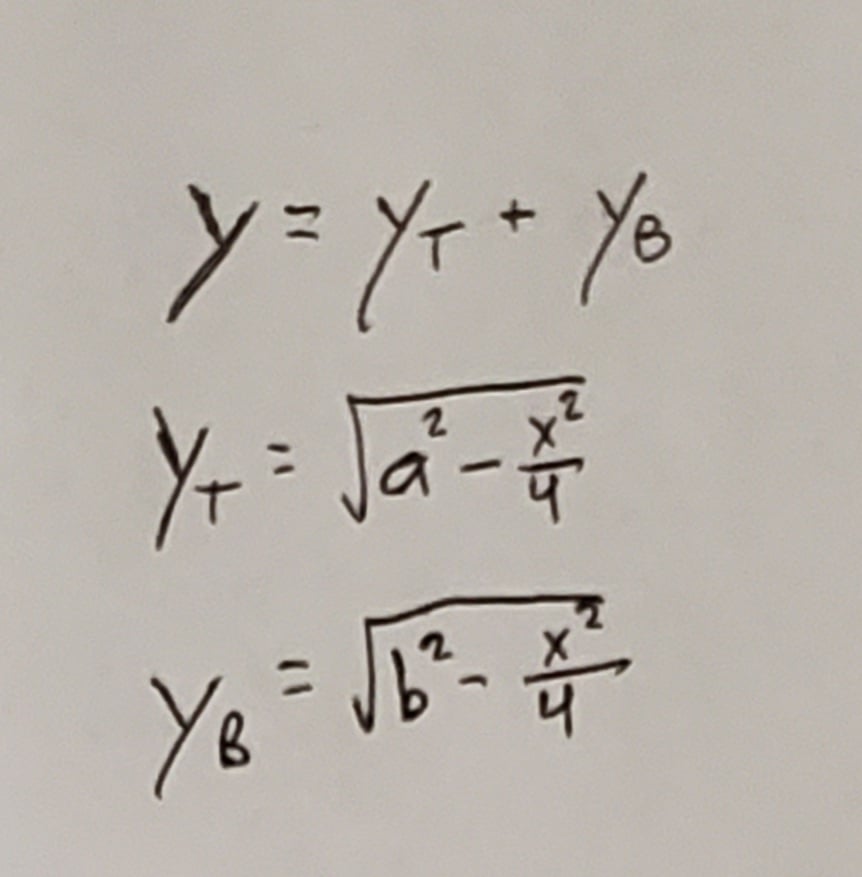 y = y_T + y_B
y_T = √(a² - x²/4)
y_B = √(b² - x²/4)